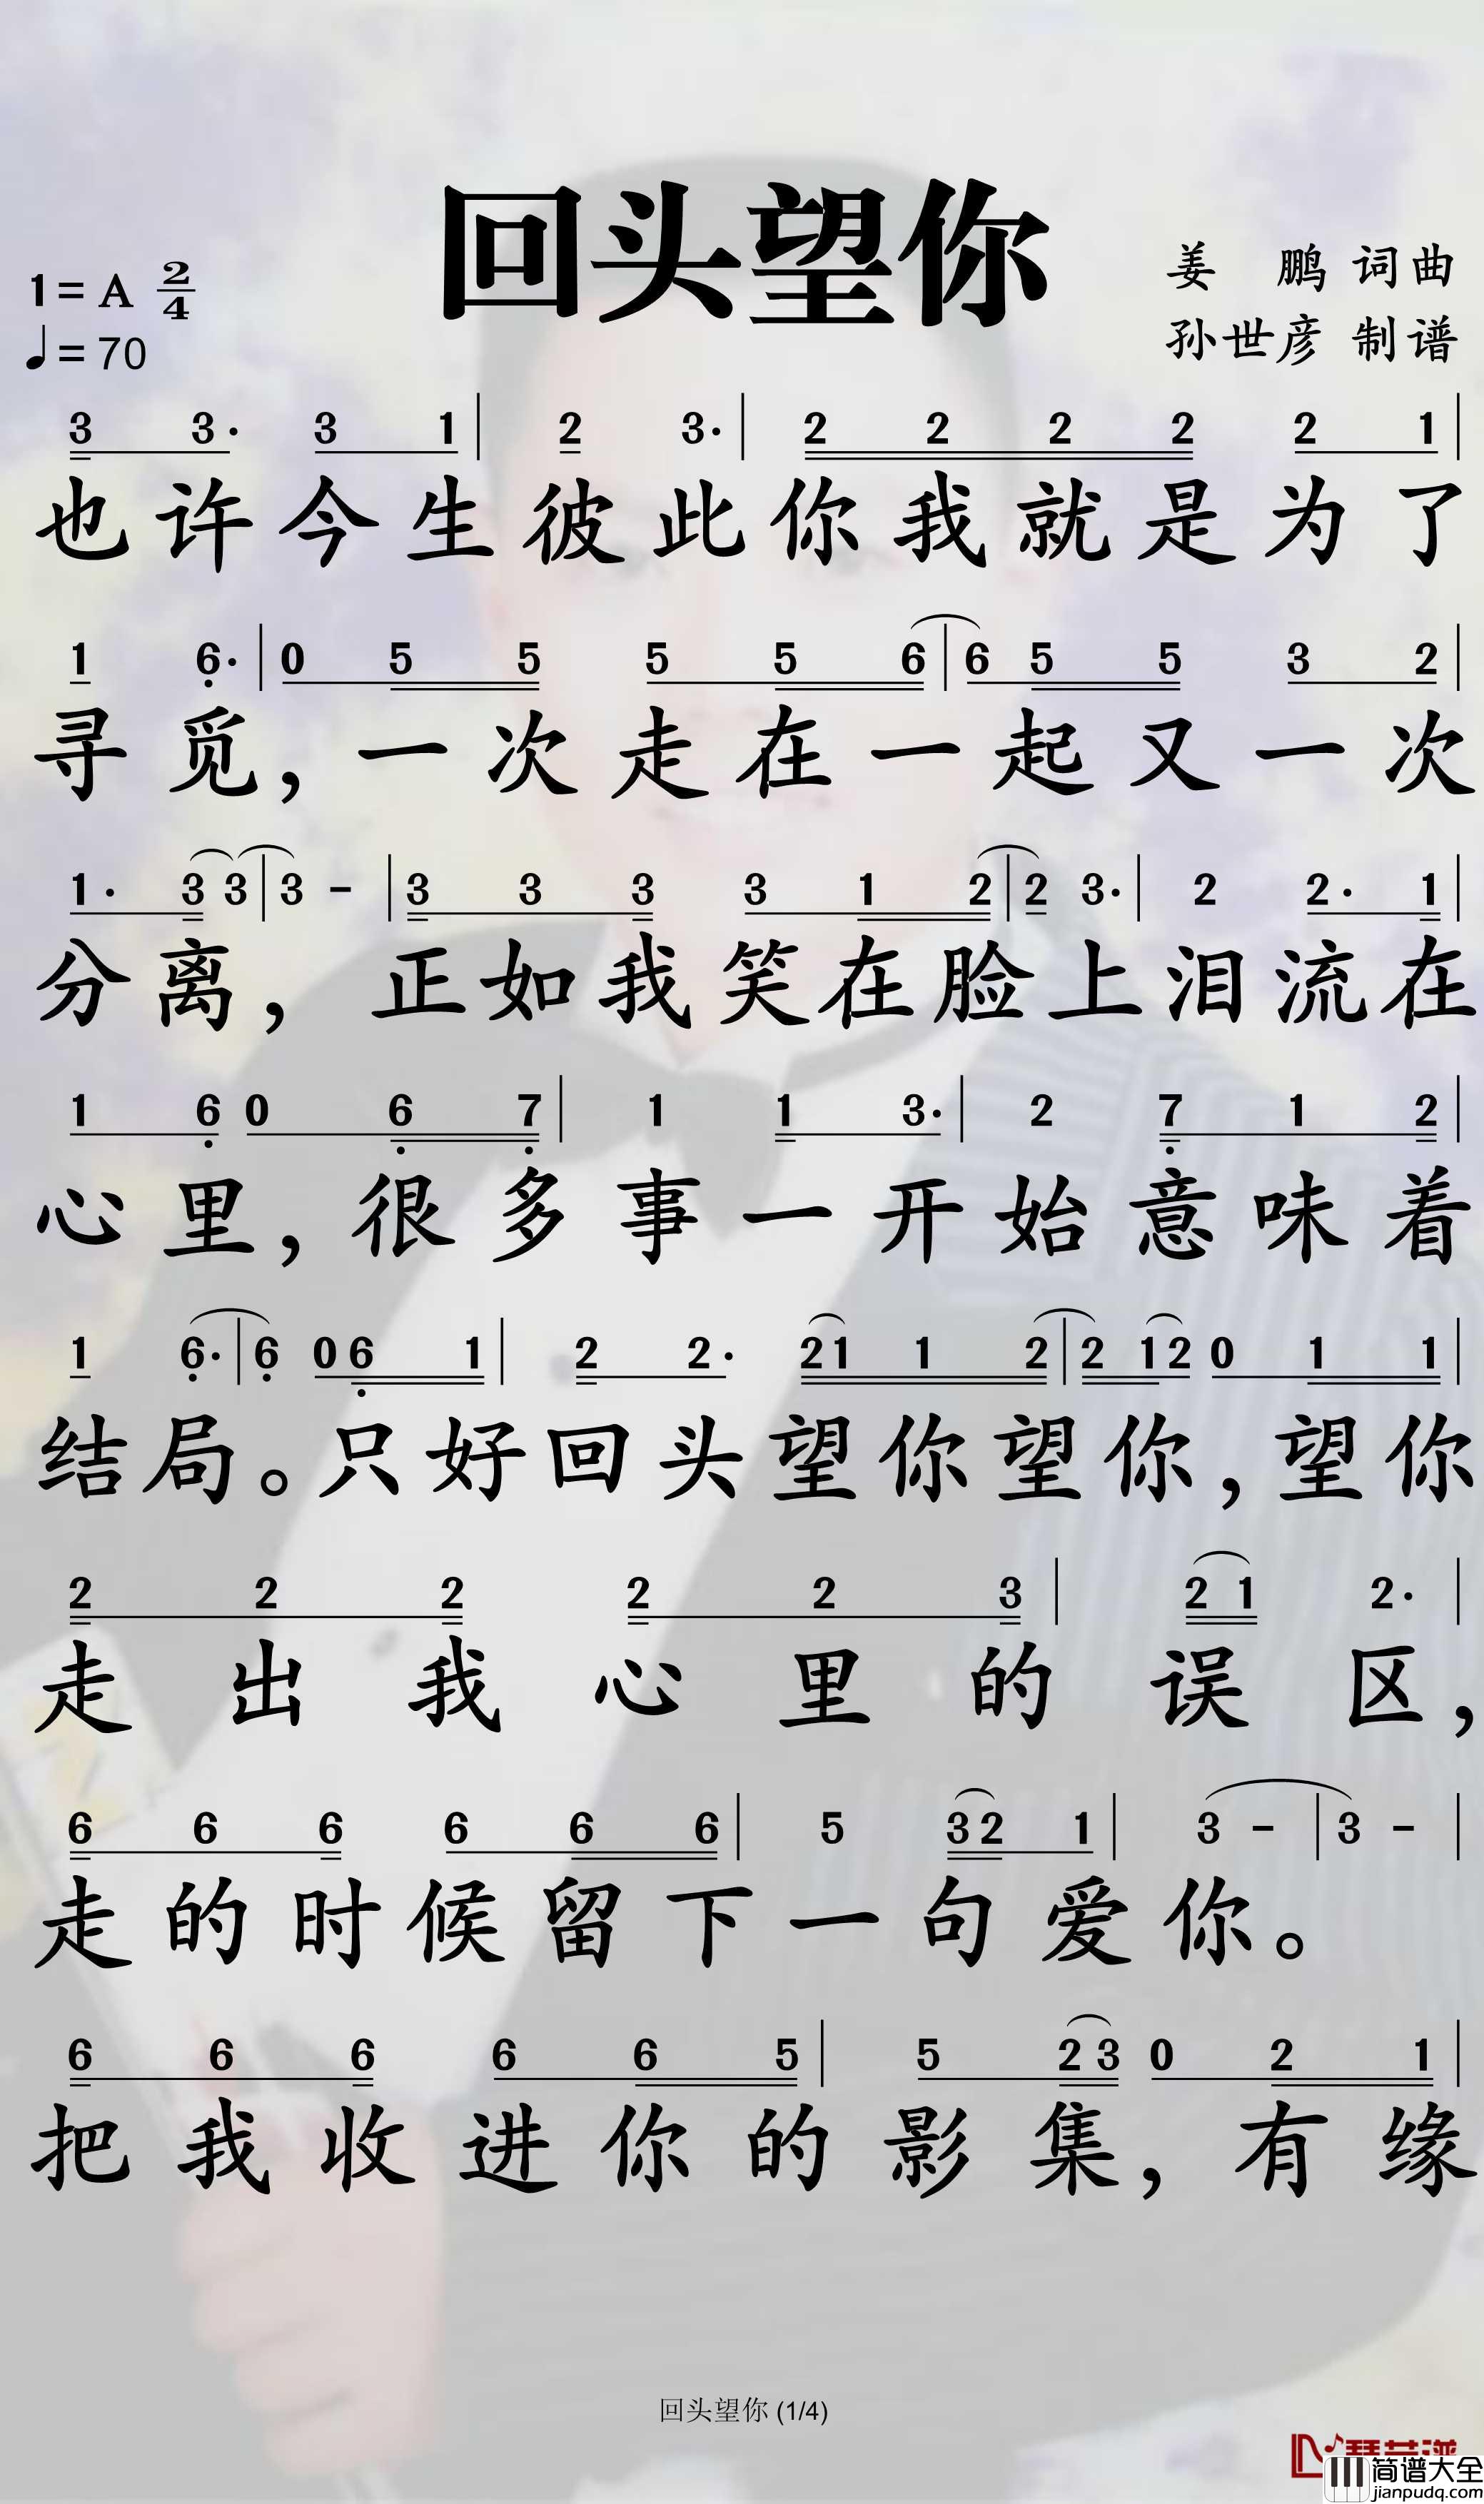 回头望你
1=A 2/4
♩=70
姜 鹏 词曲
孙世彦 制谱
3 3· 3 1 | 2 3· | 2 2 2 2 2 1 |
也许今生彼此你我就是为了
1 6· | 0 5 5 5 5 6 | 6 5 5 3 2 |
寻觅，一次走在一起又一次
1· 3 3 | 3 - | 3 3 3 3 1 2 | 2 3· | 2 2· 1 |
分离，正如我笑在脸上泪流在
1 6 0 6 7 | 1 1 3· | 2 7 1 2 |
心里，很多事一开始意味着
1 6· | 6 0 6 1 | 2 2· 2 1 1 2 | 2 1 2 0 1 1 |
结局。只好回头望你望你，望你
2 2 2 2 2 3 | 2 1 2· |
走出我心里的误区，
6 6 6 6 6 6 | 5 3 2 1 | 3 - | 3 - |
走的时候留下一句爱你。
6 6 6 6 6 5 | 5 2 3 0 2 1 |
把我收进你的影集，有缘
回头望你 (1/4)
简谱大全
jianpudq.com